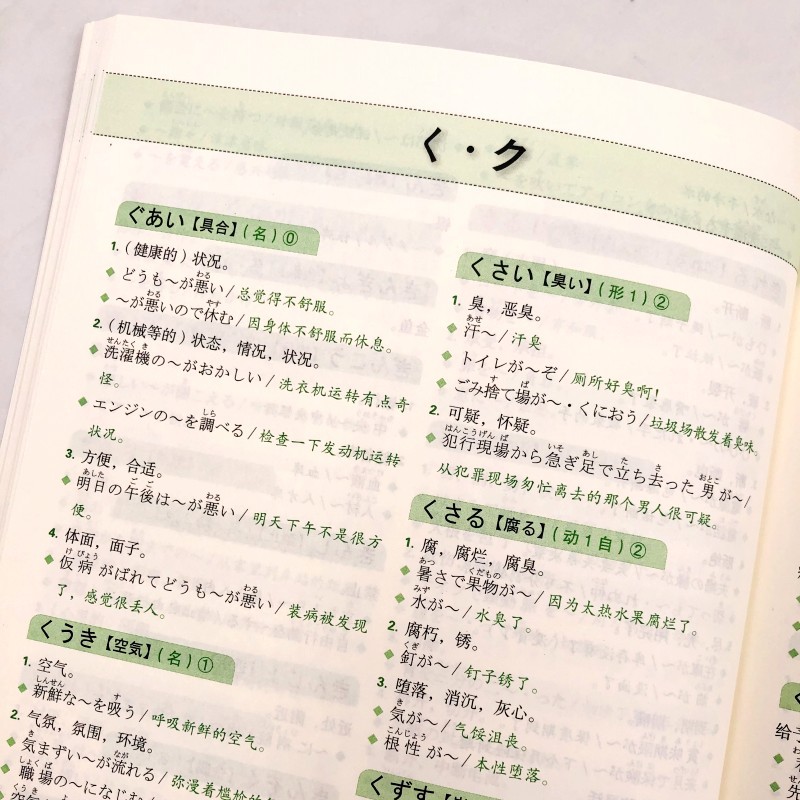 く・ク
ぐあい【具合】(名)⓪
1.(健康的)状况。
◆どうも～が悪い/总觉得不舒服。
◆～が悪いので休む/因身体不舒服而休息。
2.(机械等的)状态,情况,状况。
◆洗濯機の～がおかしい/洗衣机运转有点奇
怪。
◆エンジンの～を調べる/检查一下发动机运转
状况。
3.方便,合适。
◆明日の午後は～が悪い/明天下午不是很方
便。
4.体面,面子。
◆仮病がばれてどうも～が悪い/装病被发现
了,感觉很丢人。
くうき【空気】(名)①
1.空气。
◆新鮮な～を吸う/呼吸新鲜的空气。
2.气氛,氛围,环境。
◆気まずい～が流れる/弥漫着尴尬的
◆職場の～になじむ
くさい【臭い】(形1)②
1.臭,恶臭。
◆汗～/汗臭
◆トイレが～ぞ/厕所好臭啊!
◆ごみ捨て場が～・くにおう/垃圾场散发着臭味。
2.可疑,怀疑。
◆犯行現場から急ぎ足で立ち去った男が～/
从犯罪现场匆忙离去的那个男人很可疑。
くさる【腐る】(动1自)②
1.腐,腐烂,腐臭。
◆暑さで果物が～/因为太热水果腐烂了。
◆水が～/水臭了。
2.腐朽,锈。
◆釘が～/钉子锈了。
3.堕落,消沉,灰心。
◆気が～/气馁沮丧。
◆根性が～/本性堕落。
くずす